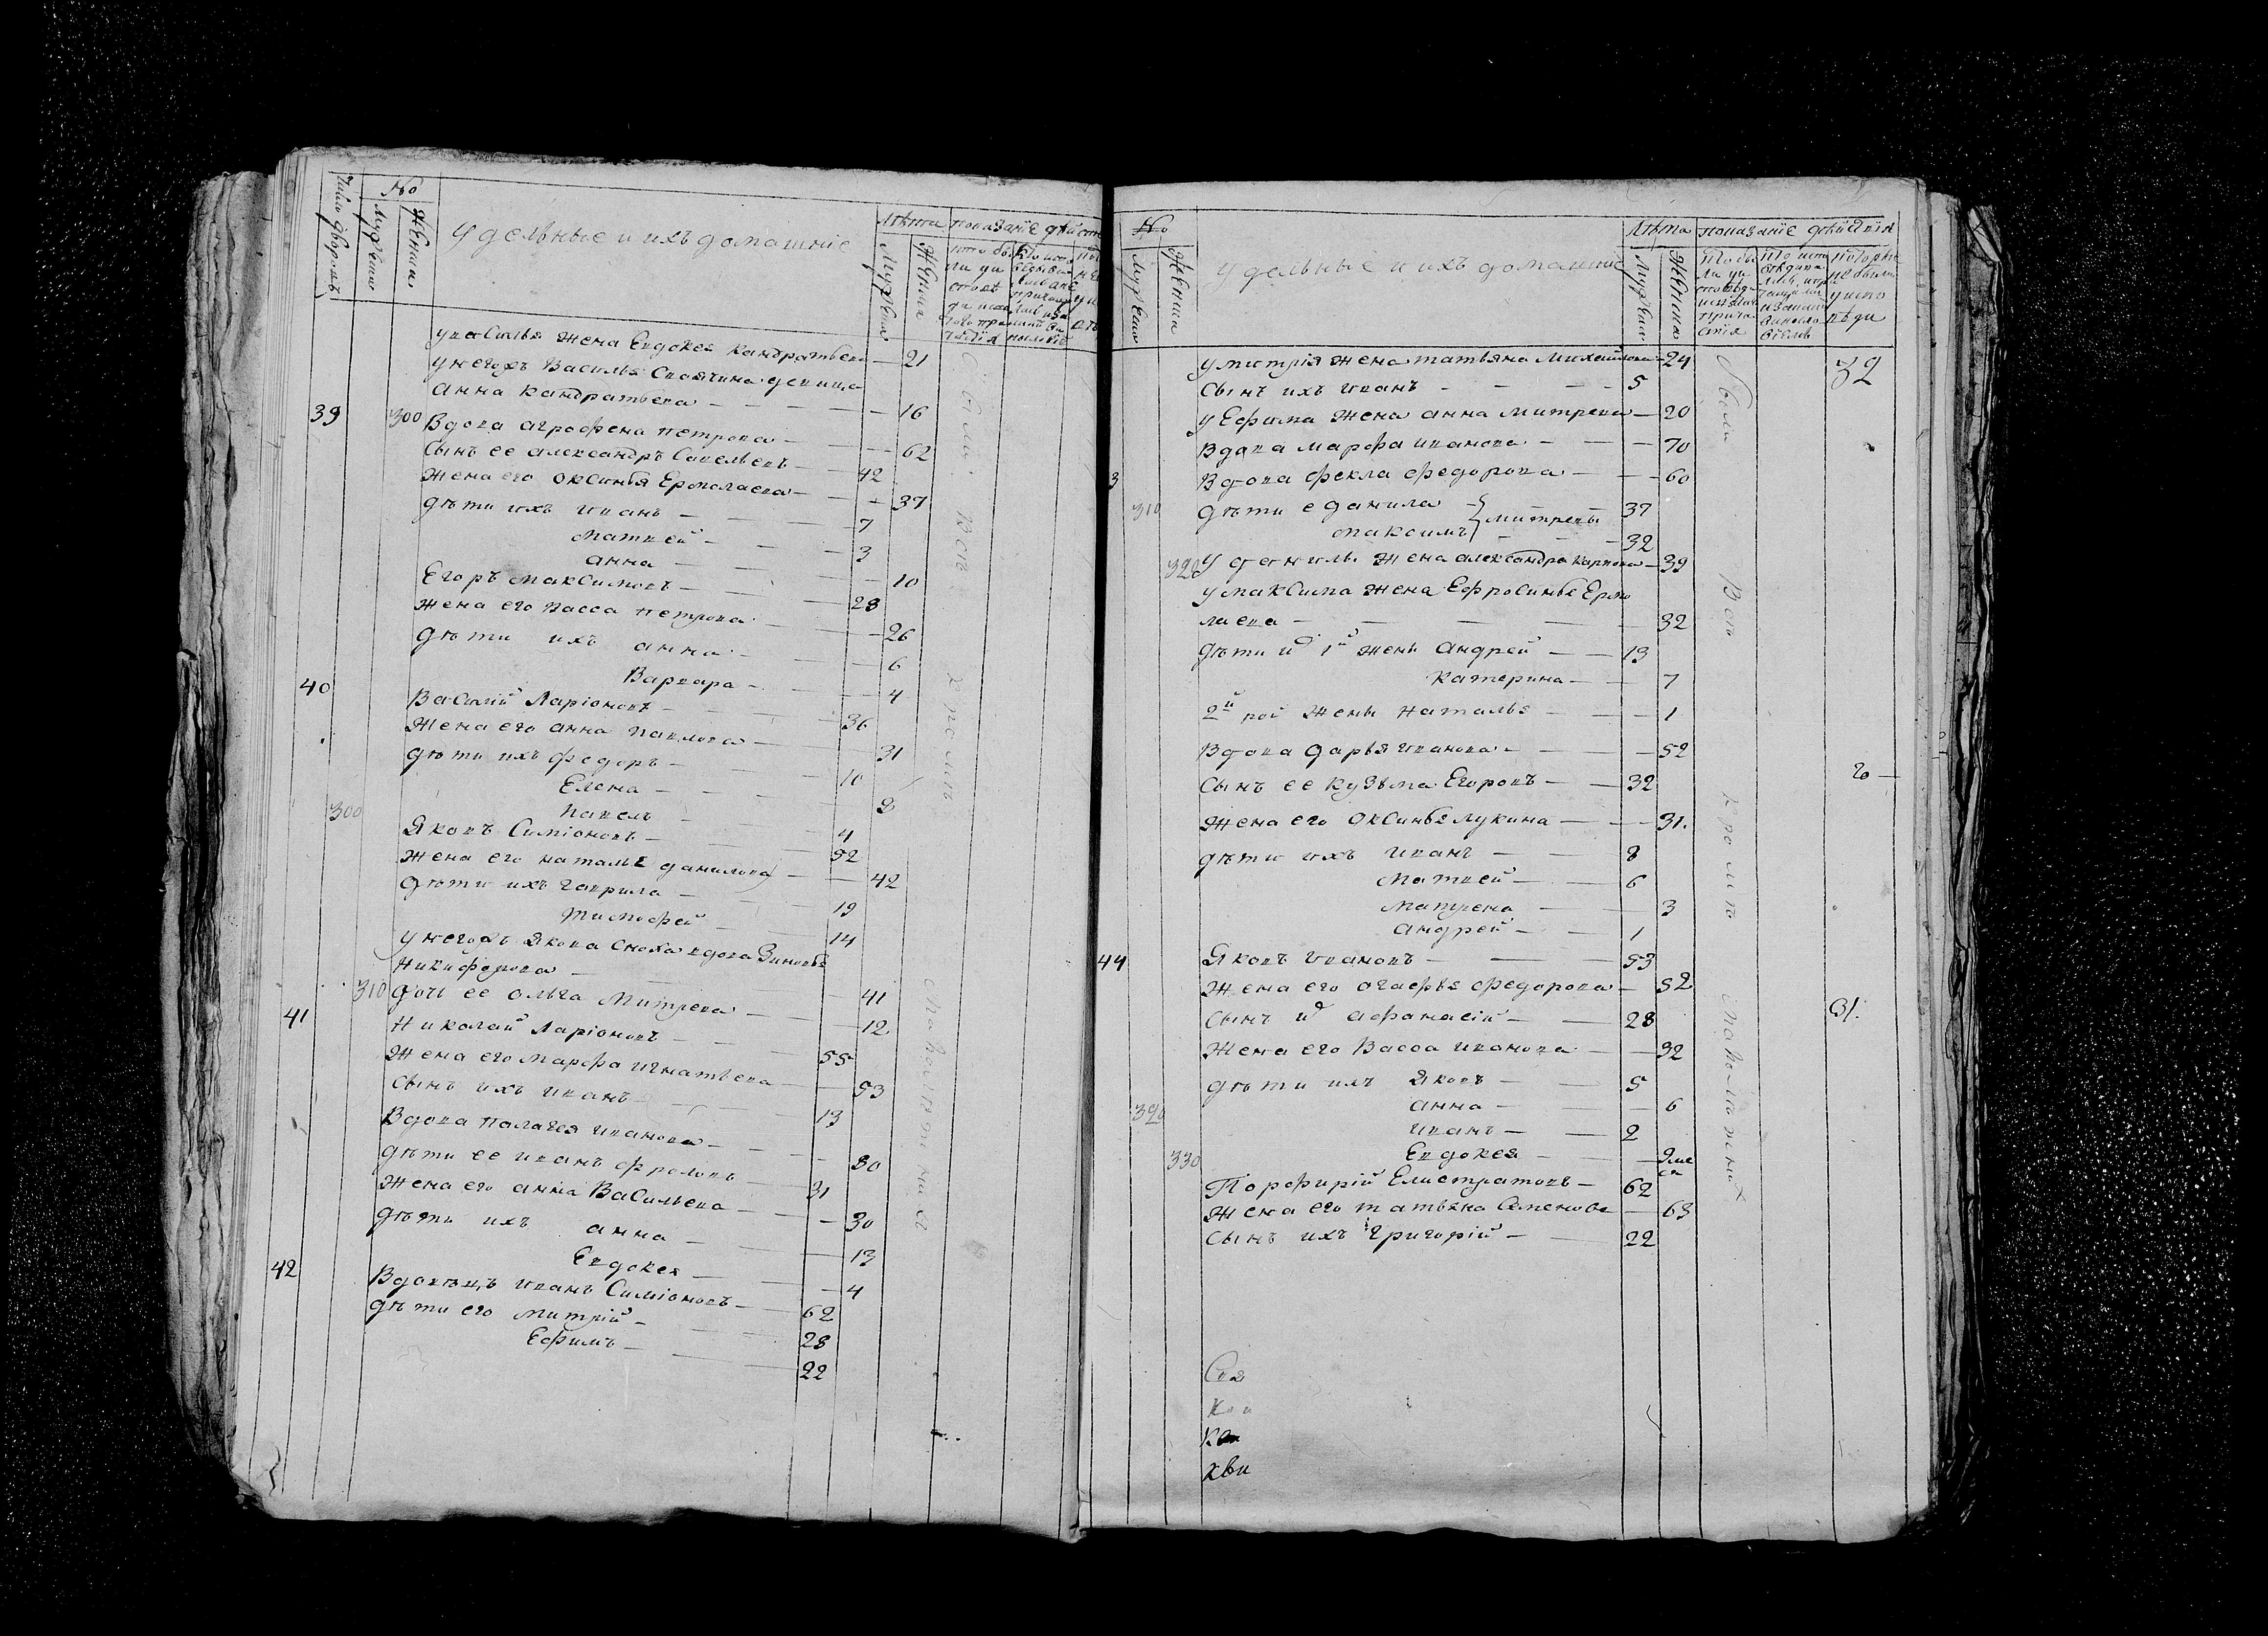 №
Число дворовъ
Мужеска
Женска
Удельные и ихъ домашніе
Лѣта
Мужеска
Женска
показаніе
у василья жена Евдокея кандратьева — 21
у негожъ Василья свояч​ина девица
анна кандратьева — 16
39 300 Вдова аграфена петрова — 62
сынъ ее александръ Савельевъ — 42
жена его оксинья Ермолаева — 37
дѣти ихъ иванъ — 7
матвей — 3
анна — 10
Егоръ максимовъ — 28
жена его васса петрова — 26
дѣти ихъ анна — 6
Варвара — 4
40 Василий Ларіоновъ — 36
жена его анна павлова — 31
дѣти ихъ федоръ — 10
Елена — 8
300 павелъ — 4
Яковъ Симіоновъ — 52
жена его наталья данилова — 42
дѣти ихъ гаврила — 19
тимофей — 14
у негожъ якова сноха вдова Зиновья
Никифорова — 41
310 дочь ее ольга митрева — 12
41 Николай Ларіоновъ — 55
жена его марфа игнатьева — 53
сынъ ихъ иванъ — 13
Вдова палагея иванова — 80
дѣти ее иванъ фроловъ — 31
жена его анна Васильева — 30
дѣти ихъ анна — 13
Евдокея — 4
42 Вдовецъ иванъ Симіоновъ — 62
дѣти его митрій — 28
Ефимъ — 22
были Вси кроме
№
Мужеска
Женска
Удельные и ихъ домашніе
Лѣта
Мужеска
Женска
показаніе действія
у митрія жена татьяна михайлова — 24
сынъ ихъ иванъ — 5
32
у Ефима жена анна митрева — 20
вдова марфа иванова — 70
3 Вдова фекла федорова — 60
310 дѣти е данила — 37
максимъ } митревы — 32
320 у данилы жена александра карпова — 39
у максима жена Ефросинья Ермо
лаева — 32
дѣти ѿ 1й жены андрей — 13
катерина — 7
2й жены наталья — 1
Вдова дарья иванова — 52
сынъ ее кузьма Егоровъ — 32
жена его оксинья лукина — 31.
дѣти ихъ иванъ — 8
матвей — 6
матрена — 3
андрей — 1
44 Яковъ ивановъ — 53
жена его агафья федорова — 52
сынъ афанасій — 28
31.
жена его Васса иванова — 32
дѣти ихъ яковъ — 5
320 анна — 6
иванъ — 2
330 Евдокея —
Порфирій Елистратовъ — 62
жена его татьяна Семенова — 63
сынъ ихъ григорій — 22
были Вси кроме
Свя
Кои